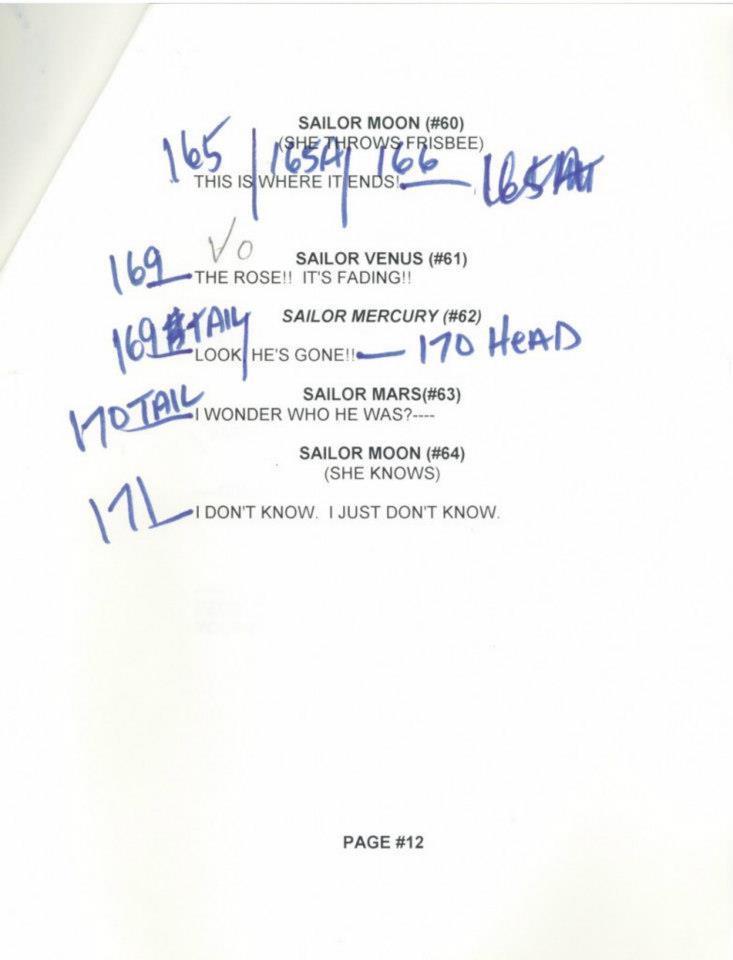 SAILOR MOON (#60)
(SHE THROWS FRISBEE)
165 165A 166
THIS IS WHERE IT ENDS!
VO
SAILOR VENUS (#61)
169 THE ROSE!! IT'S FADING!!
SAILOR MERCURY (#62)
169 TAIL
LOOK HE'S GONE!! 170 HEAD
SAILOR MARS(#63)
170 TAIL I WONDER WHO HE WAS?----
SAILOR MOON (#64)
(SHE KNOWS)
171 I DON'T KNOW. I JUST DON'T KNOW.
PAGE #12